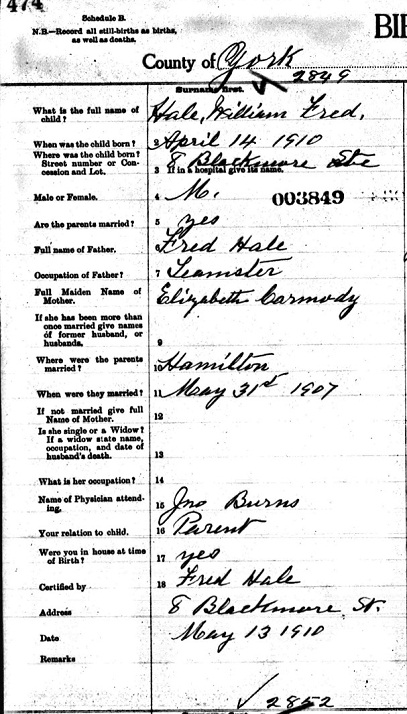 474
Schedule B.
N.B.—Record all still-births as births,
as well as deaths.
BI
County of York
2849
Surname first.
What is the full name of
child?
Hale, William Fred,
When was the child born? 2 April 14 1910
Where was the child born?
Street number or Con-
cession and Lot.
8 Blackmore Ste
3 If in a hospital give its name.
Male or Female. 4 M. 003849
Are the parents married? 5 yes
Full name of Father. 6 Fred Hale
Occupation of Father? 7 Teamister
Full Maiden Name of
Mother.
Elizabeth Carmody
If she has been more than
once married give names
of former husband, or
husbands. 9
Where were the parents
married? 10 Hamilton
When were they married? 11 May 31st 1907
If not married give full
Name of Mother. 12
Is she single or a Widow?
If a widow state name,
occupation, and date of
husband's death. 13
What is her occupation? 14
Name of Physician attend-
ing. 15 Jno Burns
Your relation to child. 16 Parent
Were you in house at time
of Birth? 17 yes
Certified by 18 Fred Hale
Address 8 Blackmore St.
Date May 13 1910
Remarks
2852